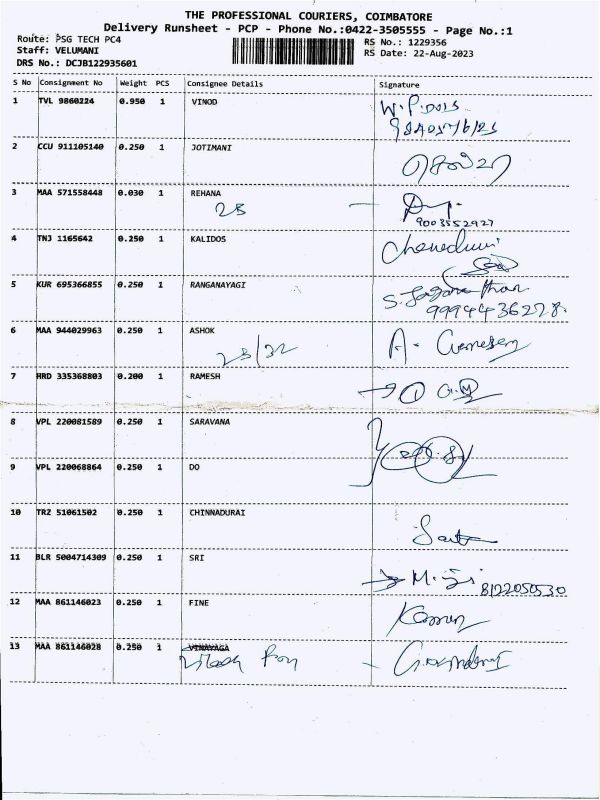 THE PROFESSIONAL COURIERS, COIMBATORE
Delivery Runsheet - PCP - Phone No.:0422-3505555 - Page No.:1
Route: PSG TECH PC4
Staff: VELUMANI
DRS No.: DCJB122935601
RS No.: 1229356
RS Date: 22-Aug-2023
S No Consignment No Weight PCS Consignee Details Signature
1 TVL 9860224 0.950 1 VINOD
2 CCU 911105140 0.250 1 JOTIMANI
3 MAA 571558448 0.030 1 REHANA
9003552927
4 TNJ 1165642 0.250 1 KALIDOS
5 KUR 695366855 0.250 1 RANGANAYAGI
9994436278.
6 MAA 944029963 0.250 1 ASHOK
7 HRD 335368803 0.200 1 RAMESH
8 VPL 220081589 0.250 1 SARAVANA
9 VPL 220068864 0.250 1 DO
10 TRZ 51061502 0.250 1 CHINNADURAI
11 BLR 5004714309 0.250 1 SRI
8122050530
12 MAA 861146023 0.250 1 FINE
13 MAA 861146028 0.250 1 VINAYAGA